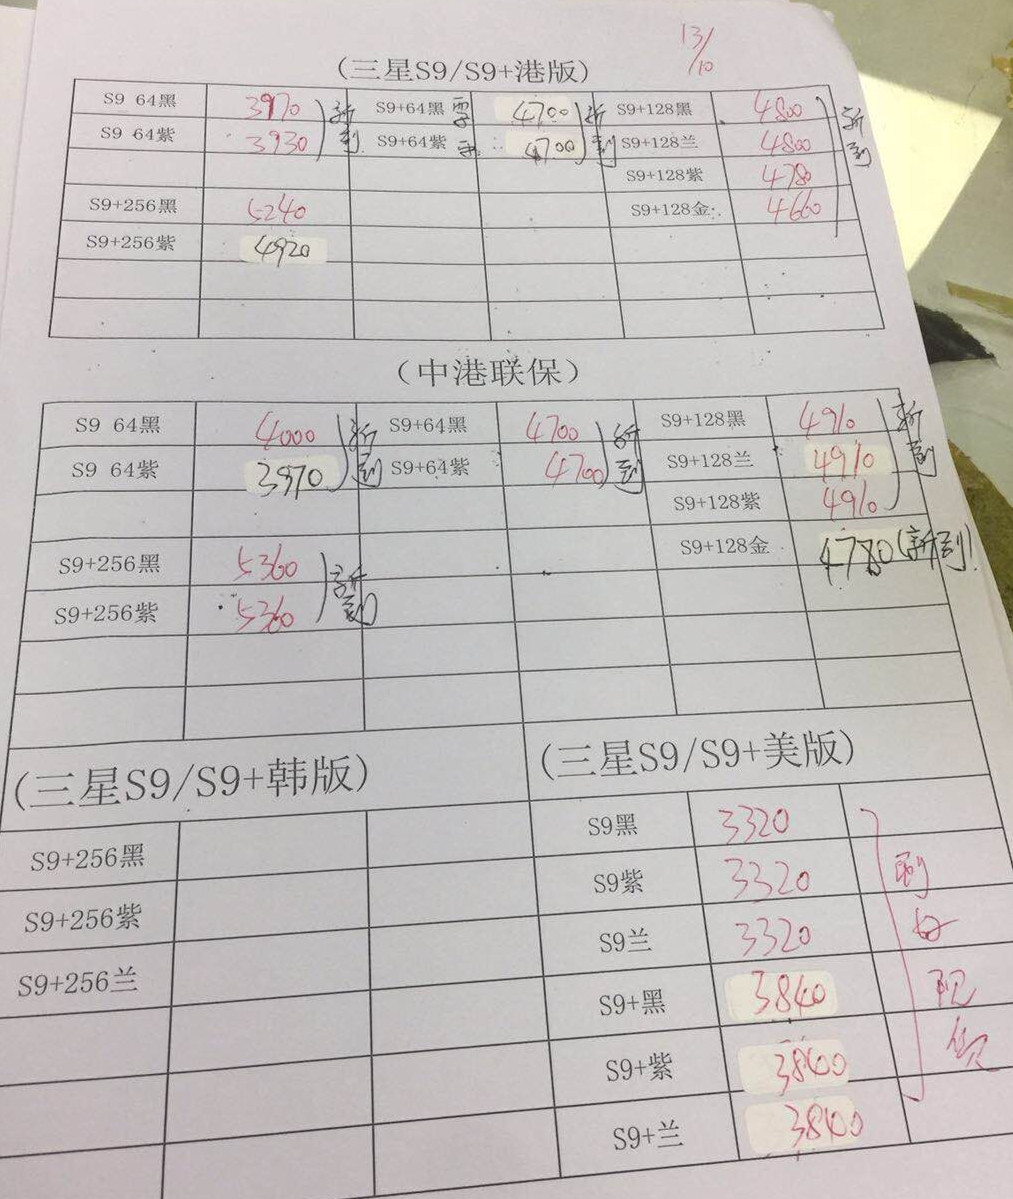 13/10
(三星S9/S9+港版)
S9 64黑 3970 新到 S9+64黑 4700 新到 S9+128黑 4800 新到
S9 64紫 3930 S9+64紫 4700 S9+128兰 4800
S9+128紫 4780
S9+256黑 5240 S9+128金 4660
S9+256紫 4920
(中港联保)
S9 64黑 4000 新到 S9+64黑 4700 新到 S9+128黑 4910 新到
S9 64紫 3970 S9+64紫 4700 S9+128兰 4910
S9+128紫 4910
S9+256黑 5360 新到 S9+128金 4780(新到!
S9+256紫 5360
(三星S9/S9+韩版) (三星S9/S9+美版)
S9+256黑
S9+256紫
S9+256兰
S9黑 3320
S9紫 3320
S9兰 3320
S9+黑 3840
S9+紫 3840
S9+兰 3840
现货